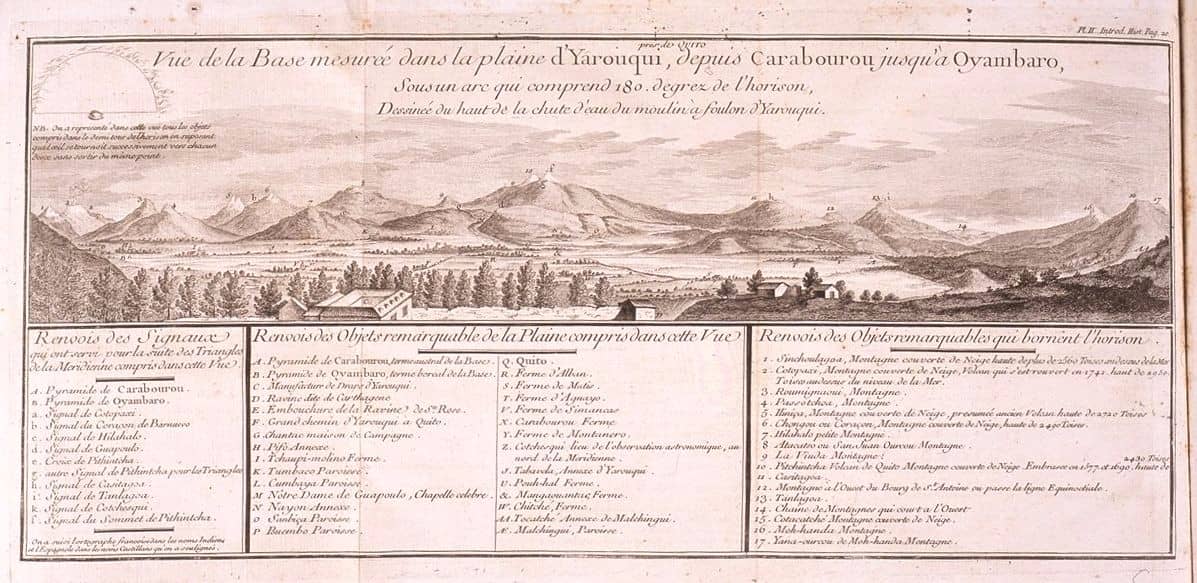 Pl. II. Introd. Hist. Pag. 20
près de QUITO
Vue de la Base mesurée dans la plaine d'Yarouqui, depuis Carabourou jusqu'à Oyambaro,
Sous un arc qui comprend 180. degrez de l'horison,
Dessinée du haut de la chute d'eau du moulin à foulon d'Yarouqui.
NB. On a representé dans cette vue tous les objets
compris dans le demi tour de l'horison en suposant
que l'œil se tournoit successivement vers chacun
d'eux sans sortir du même point.
Renvois des Signaux
qui ont servi pour la suite des Triangles
de la Meridienne compris dans cette Vue
A. Pyramide de Carabourou.
B. Pyramide de Oyambaro.
a. Signal de Cotopaxi.
b. Signal du Coraçon de Barnuevo
c. Signal de Hilahalo.
d. Signal de Guapoulo.
e. Croix de Pithintcha.
g. autre Signal de Pithintcha pour les Triangles
h. Signal de Casitagoa.
i. Signal de Tanlagoa.
k. Signal de Cotchesqui.
f. Signal du Sommet de Pithintcha.
On a suivi l'ortographe françoise dans les noms Indiens
et l'Espagnole dans les noms Castillans qu'on a soulignés.
Renvois des Objets remarquable de la Plaine compris dans cette Vue
A. Pyramide de Carabourou, terme austral de la Base.
B. Pyramide de Oyambaro, terme boreal de la Base.
C. Manufactur de Draps d'Yarouqui.
D. Ravine dite de Carthagene
E. Embouchure de la Ravine de Ste Rose.
F. Grand chemin d'Yarouqui à Quito.
G. Chantac maison de Campagne.
H. Piffo Annexe.
I. Tchaupi-molino Ferme.
K. Tumbaco Paroisse.
L. Cumbaya Paroisse.
M Nôtre Dame de Guapoulo, Chapelle celebre.
N Nayon Annexe.
O Sanbiça Paroisse
P Puembo Paroisse.
Q. Quito.
R. Ferme d'Alban.
S. Ferme de Matis.
T. Ferme d'Aguayo.
V. Ferme de Simancas
X. Carabourou Ferme
Y. Ferme de Montanero.
Z. Cotchesqui lieu de l'observation astronomique, au
nord de la Meridienne.
J. Tabavela, Annexe d'Yarouqui.
U. Pouh-hal Ferme.
&. Mangaouantac Ferme.
W. Chitche, Ferme.
AA. Tocatche Annexe de Malchingui.
Æ. Malchingui, Paroisse.
Renvois des Objets remarquables qui bornent l'horison
1. Sinchoulagoa, Montagne couverte de Neige haute de plus de 2560 Toises au dessus de la Mer
2. Cotopaxi, Montagne couverte de Neige, Volcan qui s'est rouvert en 1742. haut de 2950.
Toises au dessus du niveau de la Mer.
3. Roumignaoui, Montagne.
4. Passotchoa, Montagne.
5. Iliniça, Montagne couverte de Neige, presumée ancien Volcan haute de 2720 Toises
6. Chongou ou Coraçon, Montagne couverte de Neige, haute de 2490 Toises.
7. Hilahalo petite Montagne.
8. Atacatso ou San Juan Ourcou Montagne
9 La Viuda Montagne.
2430 Toises
10. Pitchintcha Volcan de Quito Montagne couverte de Neige. Embrasée en 1577. et 1690. haute de
11. Casitagoa.
12. Montagne à l'Ouest du Bourg de St. Antoine ou passe la ligne Equinoctiale.
13. Tanlagoa.
14. Chaine de Montagnes qui court à l'Ouest
15. Cotacatché Montagne couverte de Neige.
16. Moh-handa Montagne.
17. Yana-ourcou de Moh-handa Montagne.